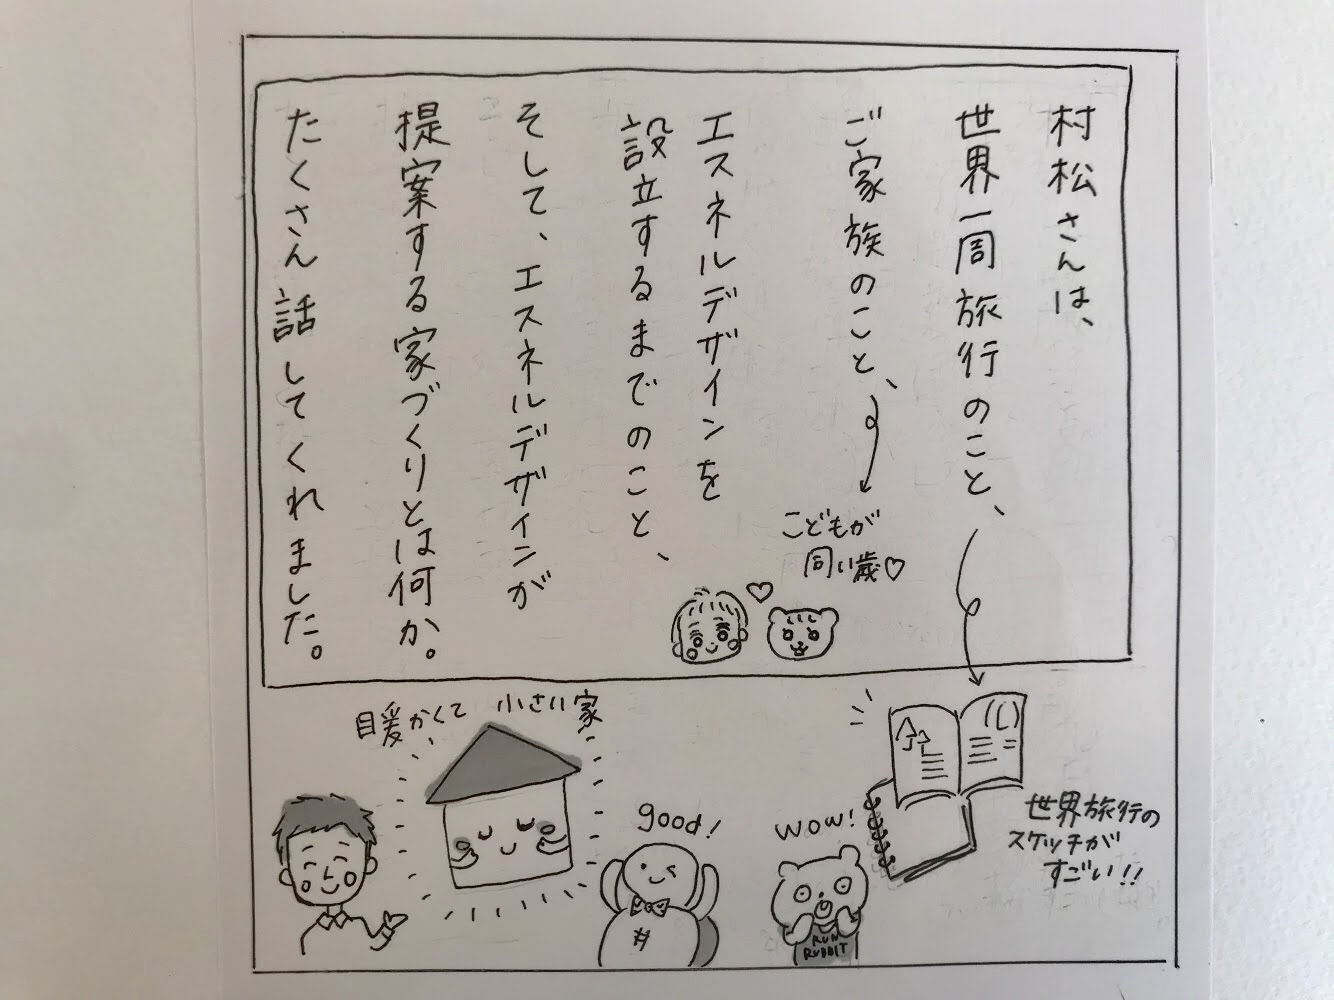 村松さんは、
世界一周旅行のこと、
ご家族のこと、
こどもが
同い歳♡
エスネルデザインを
設立するまでのこと、
そして、エスネルデザインが
提案する家づくりとは何か。
たくさん話してくれました。
世界旅行の
スケッチが
すごい!!
wow!
RUN
RUDDIT
good!
小さい家
暖かくて